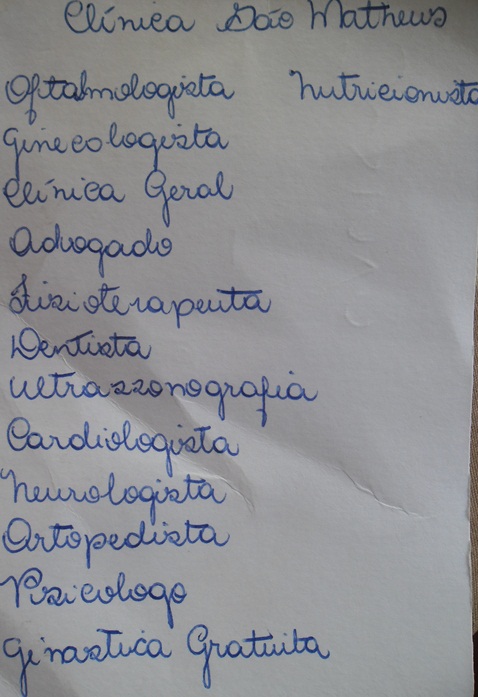 Clínica São Matheus
Oftalmologista Nutricionista
Ginecologista
Clínica Geral
Advogado
Fisioterapeuta
Dentista
Ultrazzonografia
Cardiologista
Neurologista
Ortopedista
Pisicologo
Ginastica Gratuita